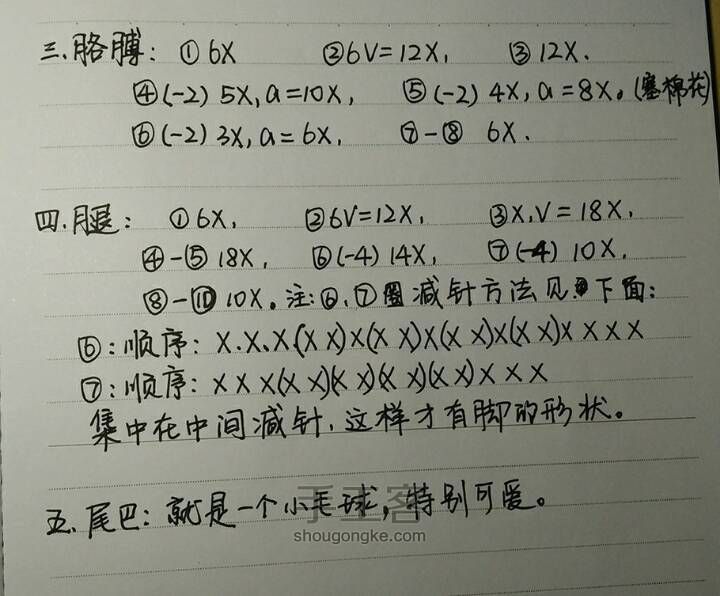 三.胳膊: ①6X ②6V=12X, ③12X.
④(-2) 5X, a=10X, ⑤(-2) 4X, a=8X。(塞棉花)
⑥(-2) 3X, a=6X, ⑦-⑧ 6X.
四.腿: ①6X, ②6V=12X, ③X,V=18X,
④-⑤18X, ⑥(-4)14X, ⑦(-4)10X,
⑧-⑪10X。注:⑥、⑦圈减针方法见下面:
⑥:顺序: X.X.X(XX)X(XX)X(XX)X(XX)XXXX
⑦:顺序: XXX(XX)(XX)(XX)(XX)XXX
集中在中间减针,这样才有脚的形状。
五.尾巴:就是一个小毛球,特别可爱。
手工客
shougongke.com